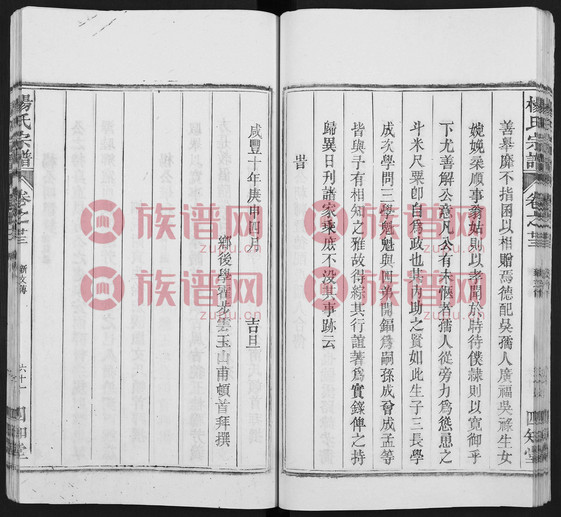 楊氏宗譜
卷之三
四知堂
善舉靡不指囷以相贈焉德配吳孺人廣福吳祿生女
婉娩柔順事翁姑則以孝聞於時待僕隸則以寬御乎
下尤善解公意凡公有未愜者孺人從旁力為慫恿之
斗米尺粟卽自為政也其內助之賢如此生子三長學
成次學問三學魁魁與同弟開錫為嗣孫成會成孟等
皆與予有相知之雅故得綜其行誼著為實錄俾之持
歸異日刊諸家乘庶不沒其事跡云
旹
咸豐十年庚申四月 吉旦
鄉後學 步雲玉山甫頓首拜撰
楊氏宗譜
卷之三
新文傳
六十一
四知堂
族谱网
zupu.cn
族谱网
zupu.cn
族谱网
zupu.cn
族谱网
zupu.cn